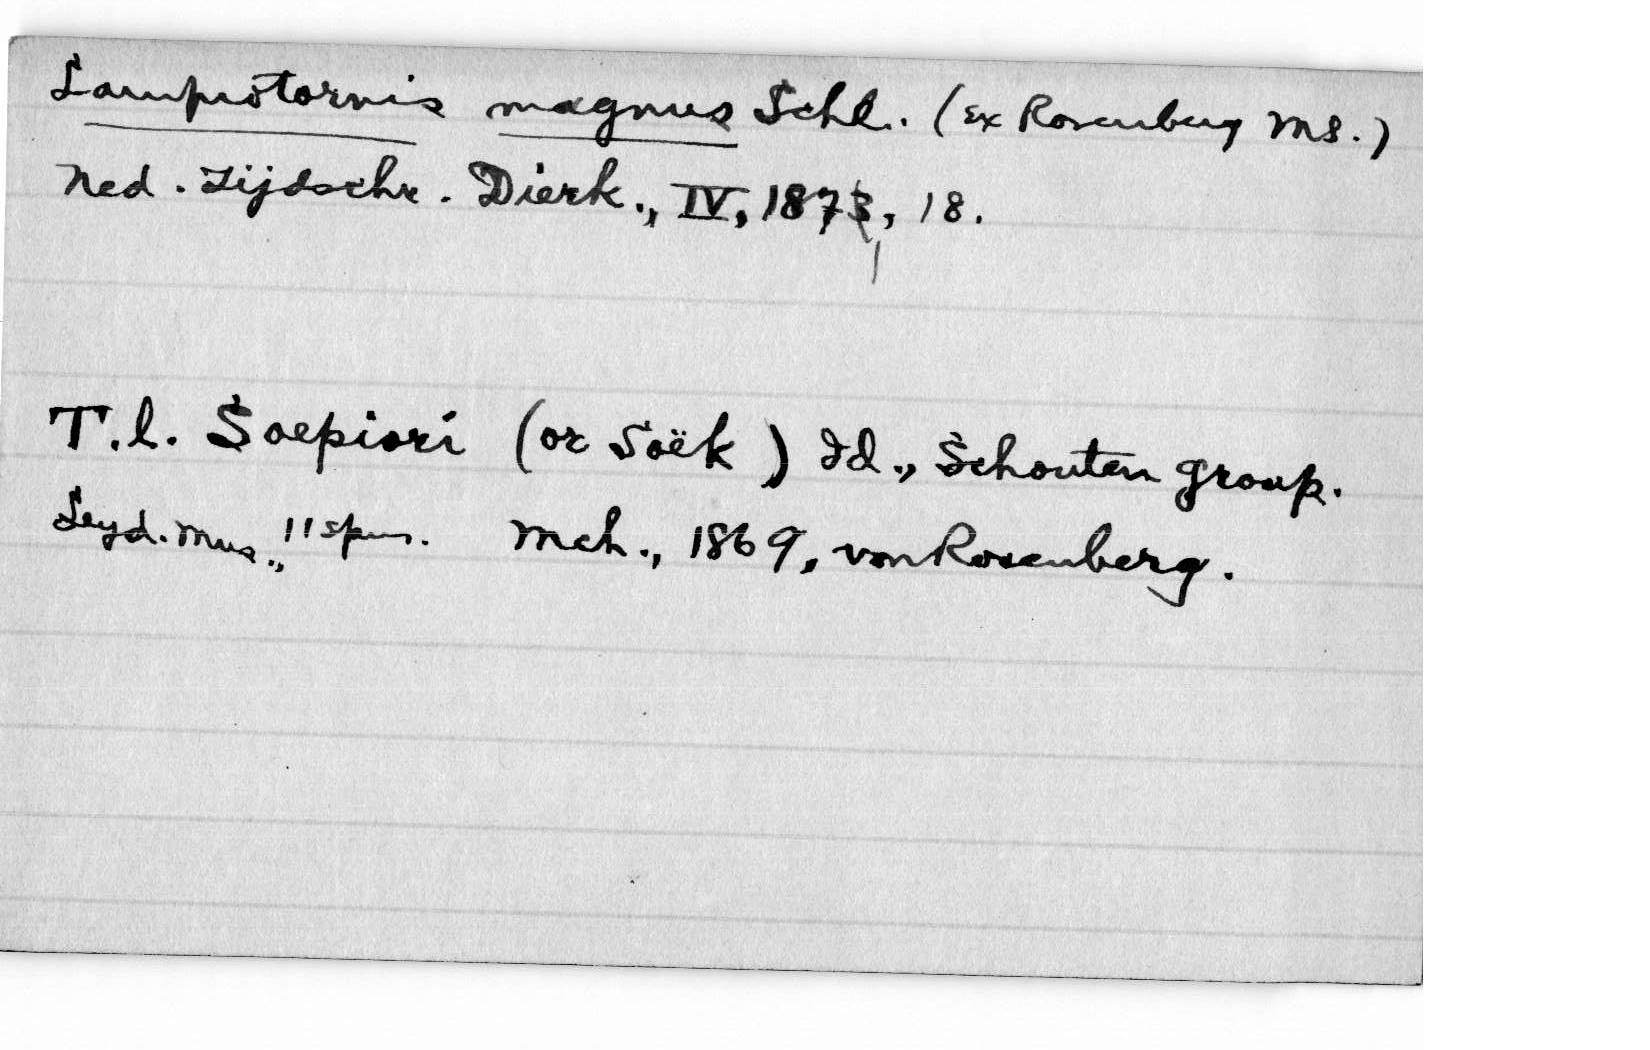 Lamprotornis magnus Schl. (ex Rosenberg MS.)
Ned. Tijdschr. Dierk., IV, 1873, 18.
1
T.l. Soepiori (or Soëk) Id., Schouten group.
Leyd. Mus., 11 spms. Mch., 1869, von Rosenberg.